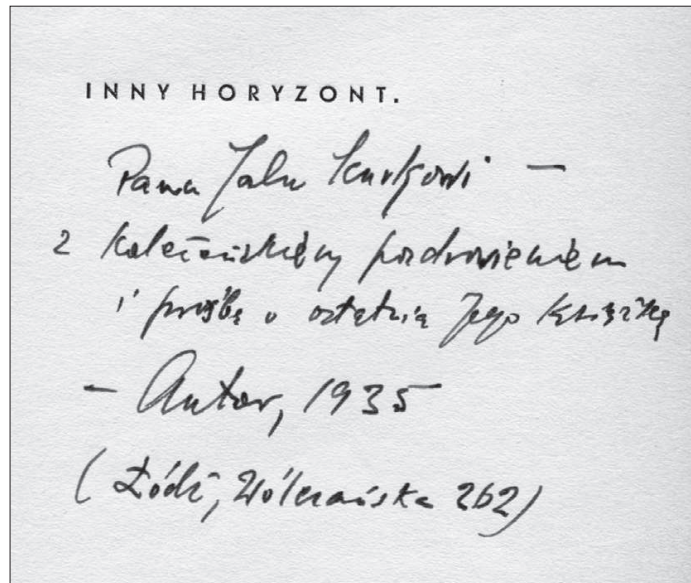 INNY HORYZONT.
Panu Jalu Kurkowi —
z koleżeńskiem pozdrowieniem
i prośbą o ostatnią Jego książkę
— Autor, 1935
(Łódź, Wólczańska 262)